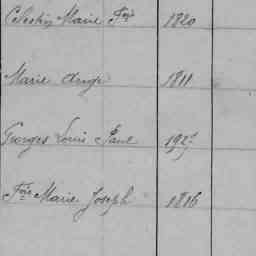 Célestin Marie Fois 1820
Marie Ange 1811
Georges Louis Paul
Fois Marie Joseph 1816